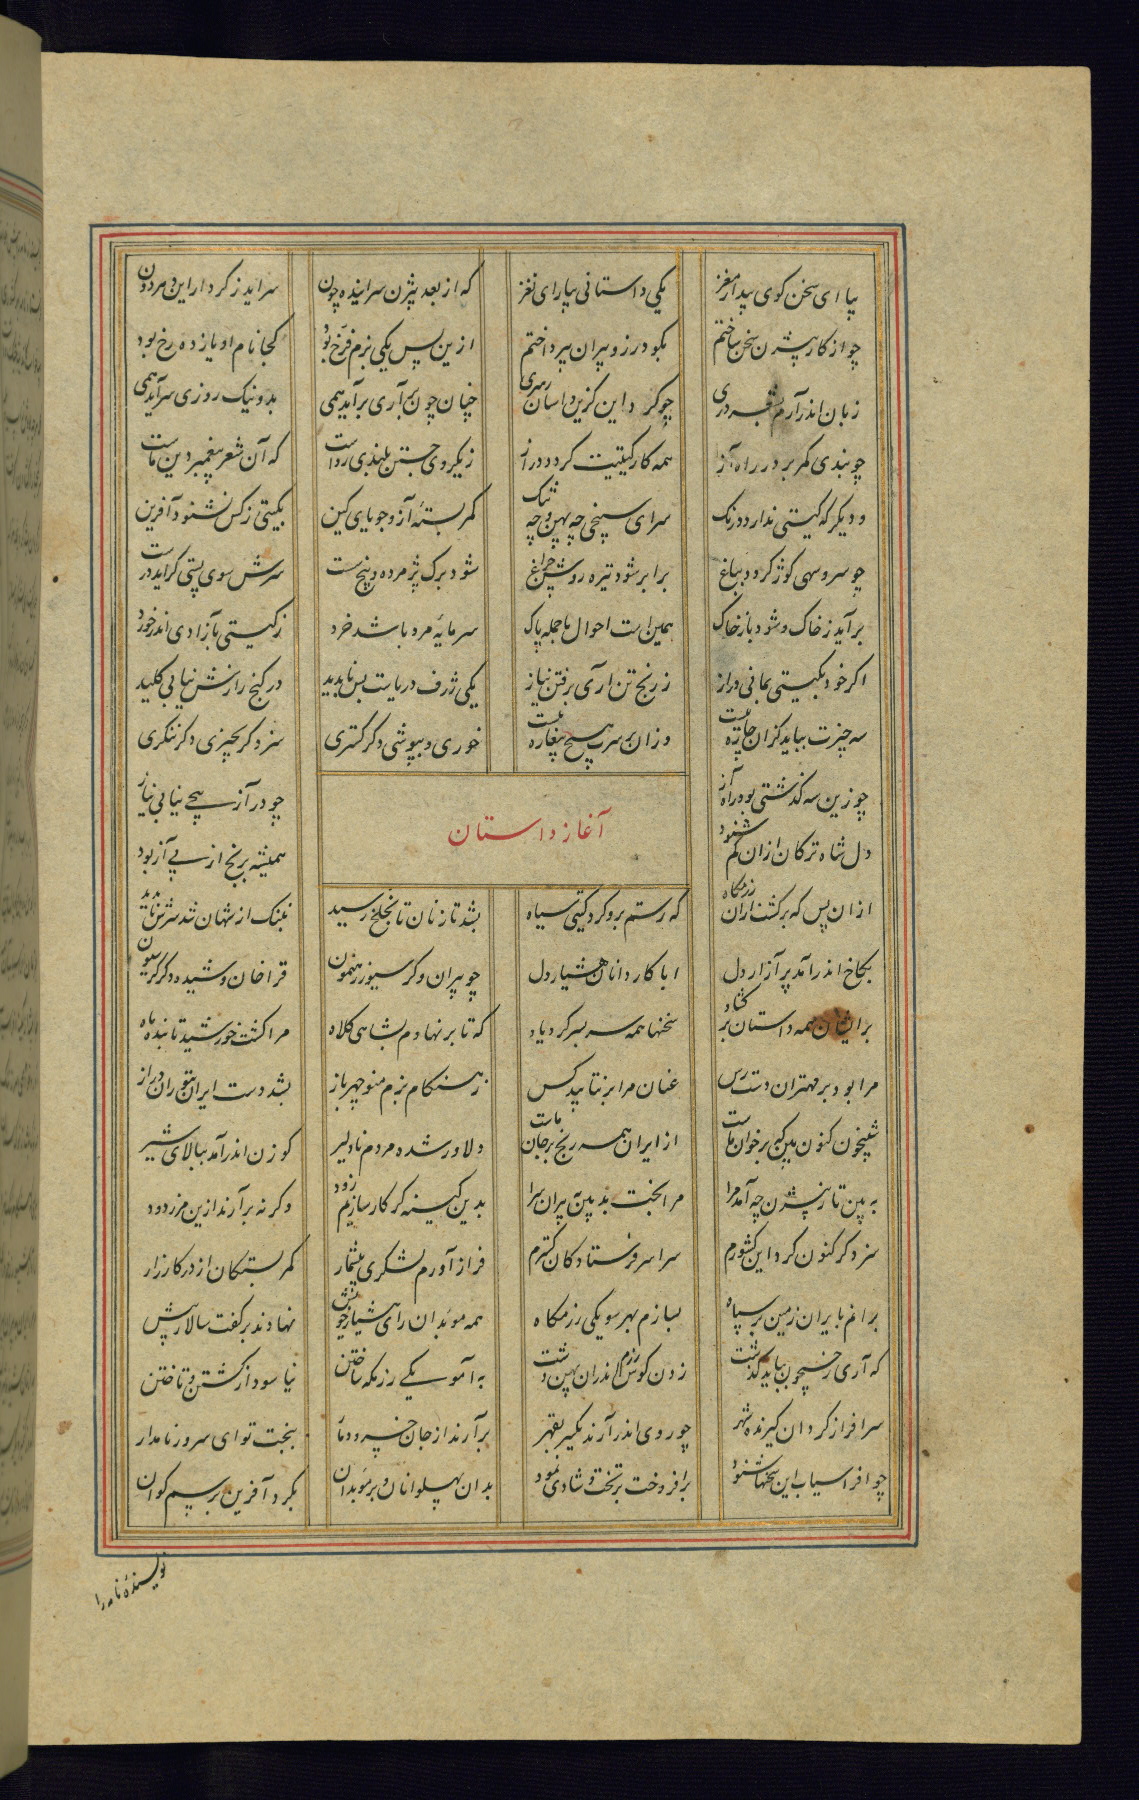 بیا ای سخن کوی بیدار مغز یکی داستانی بیارای نغز که از بعد بیژن سراینده چون سراید ز کردار این هر دون
چو از کار بیژن سخن ساختم بکودرز و پیران بپرداختم ازین پس یکی بزم فرخ بود کجا نام او یازده رخ بود
زبان اندر آرم بشعر دری چو کرد این کزین داستان رسری چنان چون برآری برآید همی بد و نیک روزی سرآید همی
چو بندی کمر بر در راه آز همه کار کیتیت کردد دراز ز یکروی جستن بلندی رواست که آن شعر پیغمبر دین ماست
و دیکر که کیتی ندارد درنک سرای سپنجی چه پهن و چه تنک کمر بستهٔ آز و جویای کین بکیتی ز کس نشنود آفرین
چو سرو سهی کوژ کردد بباغ برابر شود تیره روشن چراغ شود برک پژمرده و بیخ سست سرش سوی پستی کراید درست
برآید ز خاک و شود باز خاک همین است احوال ما جمله پاک سرمایهٔ مرد باشد خرد ز کیتی بآزادی اندر خورد
اکر خود بکیتی بمانی دراز ز رنج تن آری برفتن نیاز یکی ژرف دریاست بن ناپدید در کنج رازش نیابی کلید
سه چیزت بباید کزان چاره نیست وزان بر سرت هیچ پیغاره نیست خوری و بپوشی و کر کستری سزد کر بچیزی دکر ننکری
چو زین سه کذشتی بود راه آز چو در آز پیچی نیابی نیاز
آغاز داستان
دل شاه ترکان ازان کم شنود همیشه برنج از پی آز بود
ازان پس که برکشت ازان رزمکاه که رستم برو کرد کیتی سیاه بشد تازنان تا بخلخ رسید بننک از شهان شد سرش ناپدید
بکاخ اندر آمد پر آزار دل ابا کاردانان هشیار دل چو پیران و کرسیوز رهنمون قراخان و شیده و کرکوی
برایشان همه داستان برکشاد سخنها همه سربسر کرد یاد که تا بر نهادم بشاهی کلاه مرا کشت خورشید تابنده ماه
مرا بود بر مهتران دست رس عنان مرا بر نتابید کس ز هنکام بزم منوچهر باز بشد دست ایران بتوران دراز
شبیخون کنون بین کی بر خوان ماست از ایران همه رنج بر جان ماست دلاور شده مردم نادلیر کوزن اندر آمد ببالای شیر
ببین تا ز بیژن چه آمد مرا مر ابخت بد بین پیران سرا بدین کینه کر کار سازیم زود وکرنه برآرند ازین مرز دود
سزد کر کنون کرد این کشورم سراسر فرستادکان کسترم فراز آورم لشکری بیشمار کمر بستکان از در کارزار
برانم بایران زمین بر سپاه بسازم بهر سو یکی رزمکاه همه موبدان رای هشیار خویش نهادند بر کفت سالار پیش
که آری ز جیحون بباید کذشت زدن کوس رزم اندران پهن دشت به آمو یکی رزمکه ساختن نیاسود از کشتن و تاختن
سرافراز کردان کیرنده شهر چو روی اندر آرند یکسر بقهر برآرند از جان خسرو دمار ببخت تو ای سرور نامدار
چو افراسیاب این سخنها شنود برافروخت بر تخت و شادی نمود بدان پهلوانان و بر موبدان بکرد آفرین بر رسم کوان
نویسندهٔ نامه را